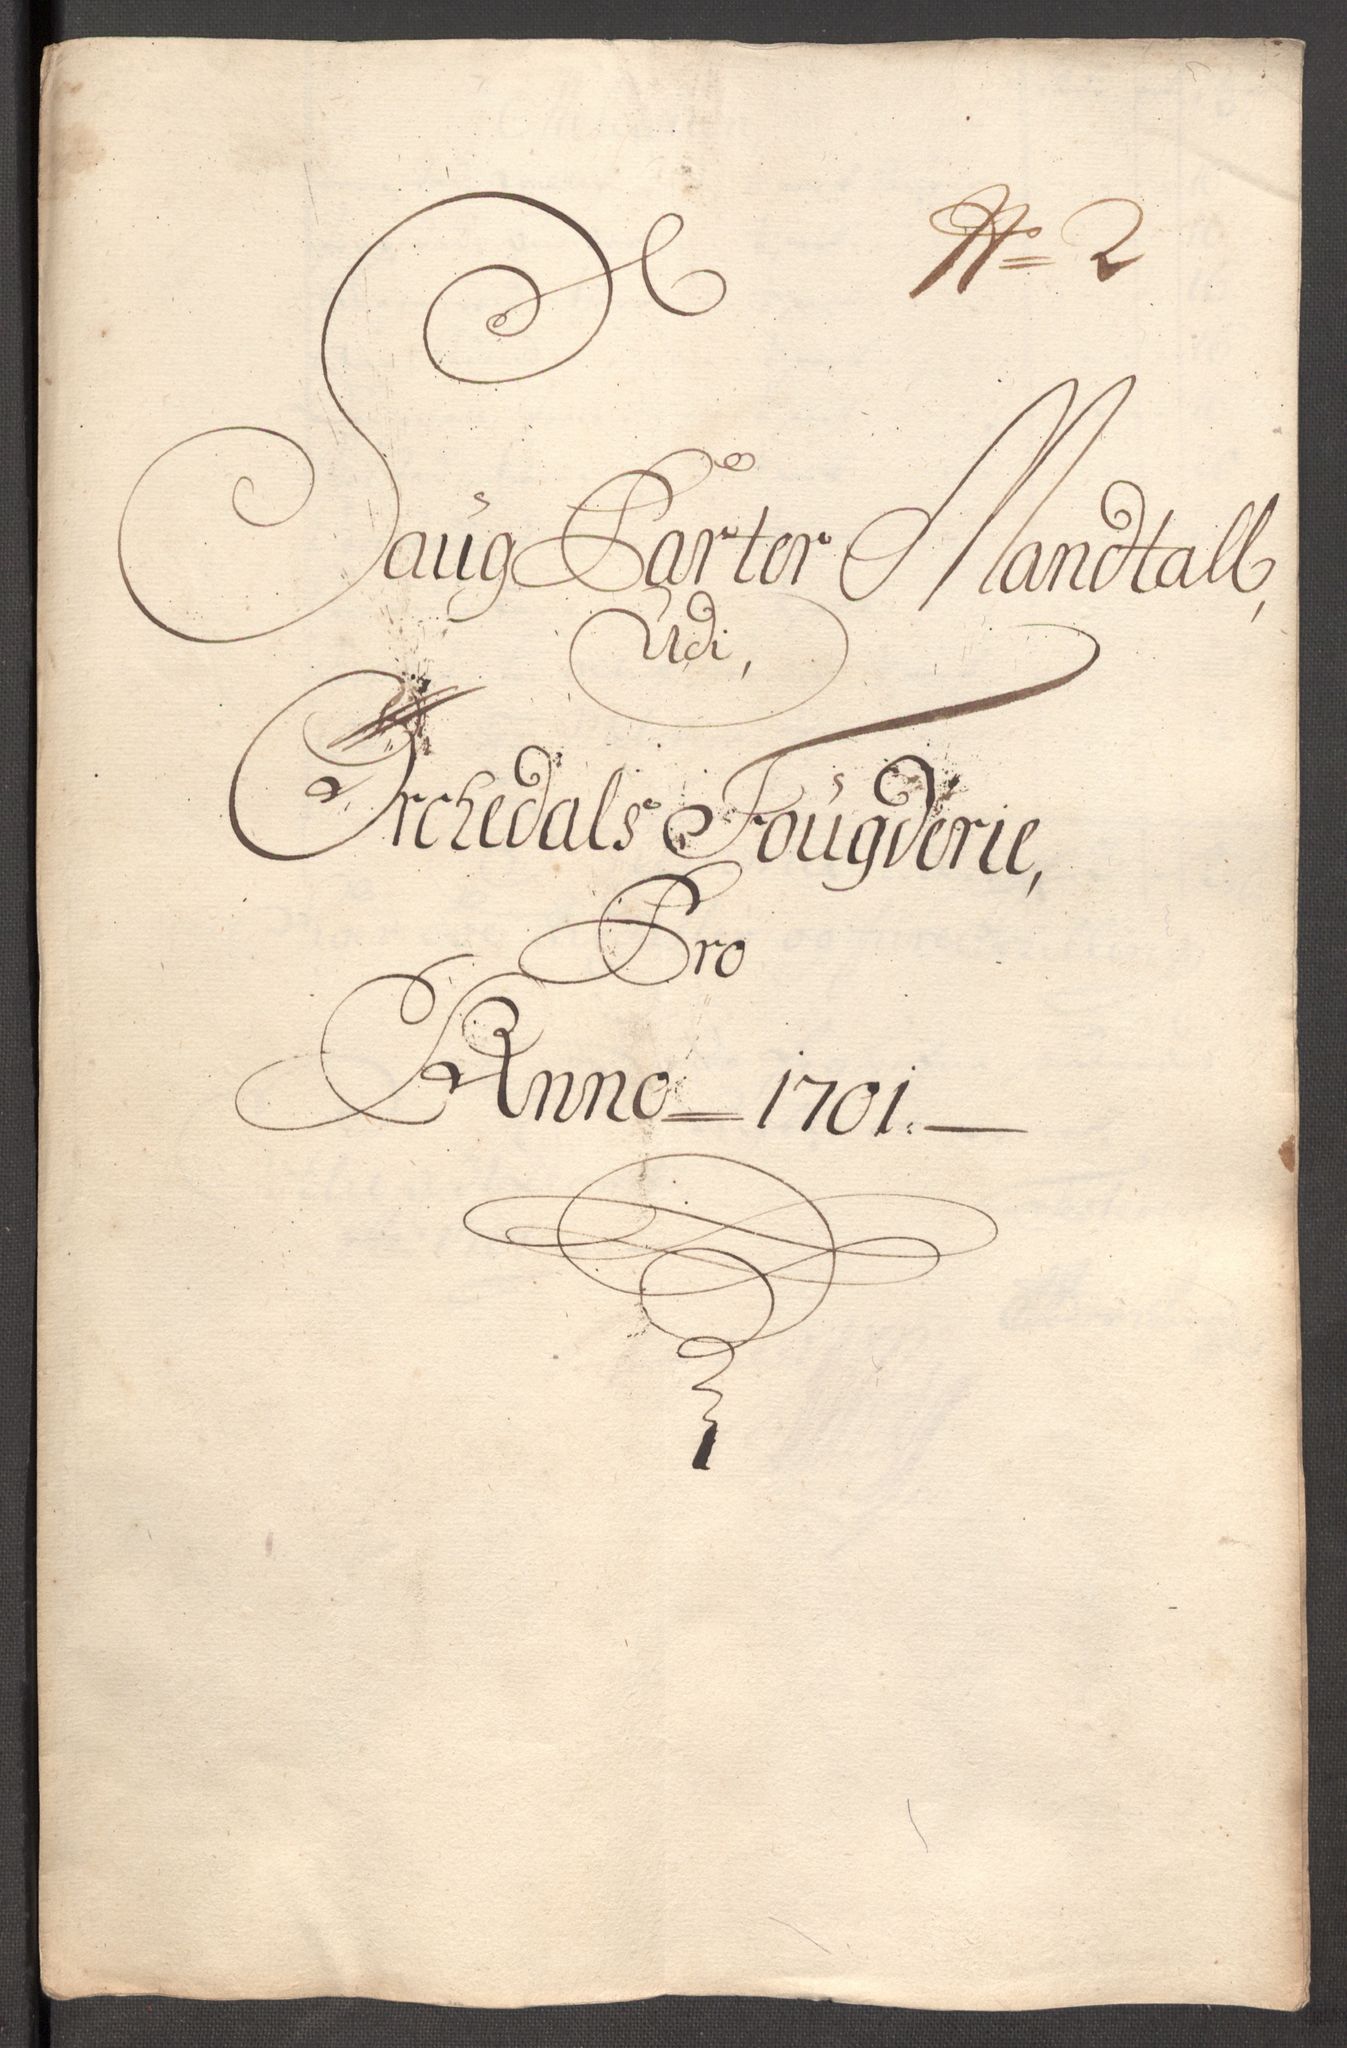 No 2
Saug Parter Mandtall,
Udi,
Orchedals Fougderie,
Pro
Anno 1701.